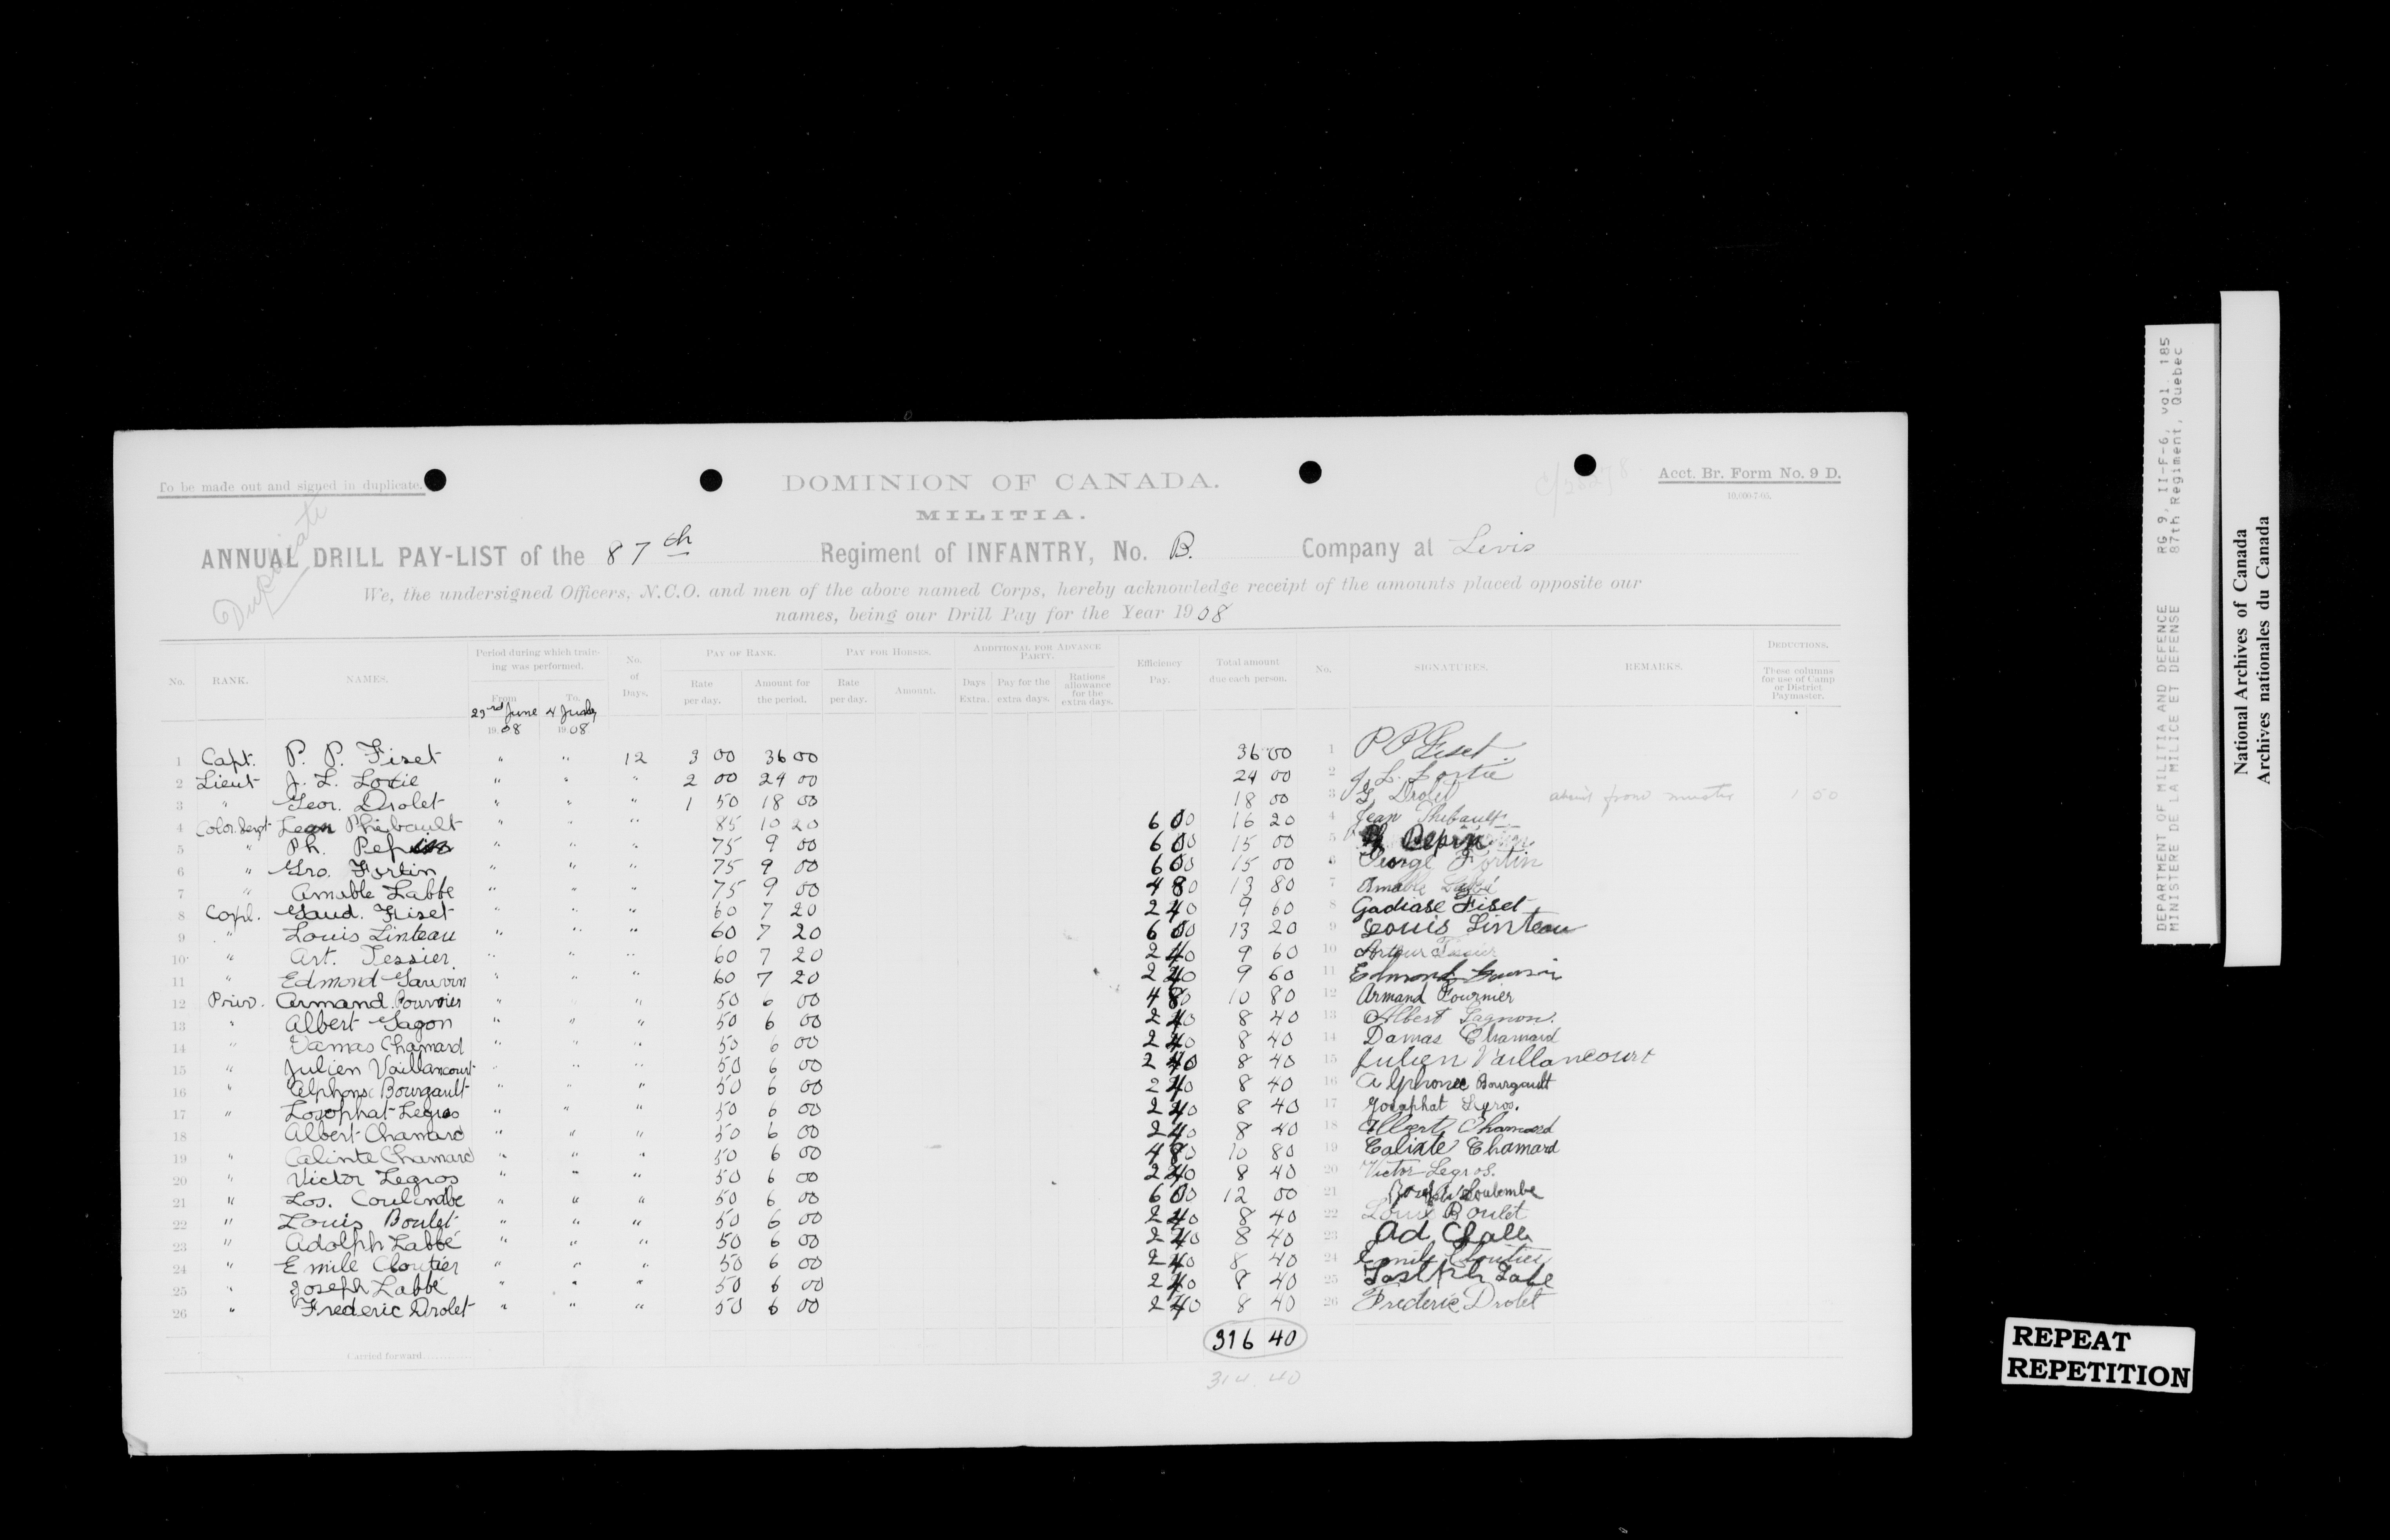 To be made out and signed in duplicate.
DOMINION OF CANADA.
Acct. Br. Form No. 9 D.
MILITIA.
Duplicate
ANNUAL DRILL PAY-LIST of the 87th Regiment of INFANTRY, No. B. Company at Levis
We, the undersigned Officers, N.C.O. and men of the above named Corps, hereby acknowledge receipt of the amounts placed opposite our
names, being our Drill Pay for the Year 1908
No. RANK. NAMES. Period during which training was performed. From 23rd June 1908 To 4 July 1908 No. of Days. PAY OF RANK. Rate per day. Amount for the period. PAY FOR HORSES. Rate per day. Amount. ADDITIONAL FOR ADVANCE PARTY. Days Extra. Pay for the extra days. Rations allowance for the extra days. Efficiency Pay. Total amount due each person. No. SIGNATURES. REMARKS. DEDUCTIONS. These columns for use of Camp or District Paymaster.
1 Capt. P. P. Fiset " " 12 3 00 36 00 36 00 1 P P Fiset
2 Lieut J. L. Lortie " " " 2 00 24 00 24 00 2 J. L. Lortie
3 " Geor. Drolet " " " 1 50 18 00 18 00 3 G Drolet absent from muster 1 50
4 Color Sergt Jean Thibault " " " 85 10 20 6 00 16 20 4 Jean Thibault
5 " Ph. Pepin " " " 75 9 00 6 00 15 00 5 Pepin
6 " Geo. Fortin " " " 75 9 00 6 00 15 00 6 George Fortin
7 " Amable Labbé " " " 75 9 00 4 80 13 80 7 Amable Labbé
8 Copl. Gaud. Fiset " " " 60 7 20 2 40 9 60 8 Gadiase Fiset
9 " Louis Linteau " " " 60 7 20 6 00 13 20 9 Louis Linteau
10 " Art. Tessier " " " 60 7 20 2 40 9 60 10 Arthur Tessier
11 " Edmond Gauvin " " " 60 7 20 2 40 9 60 11 Edmond Gauvin
12 Priv. Armand Fournier " " " 50 6 00 4 80 10 80 12 Armand Fournier
13 " Albert Gagon " " " 50 6 00 2 40 8 40 13 Albert Gagnon.
14 " Damas Chamard " " " 50 6 00 2 40 8 40 14 Damas Chamard
15 " Julien Vaillancourt " " " 50 6 00 2 40 8 40 15 Julien Vaillancourt
16 " Alphonse Bourgault " " " 50 6 00 2 40 8 40 16 Alphonse Bourgault
17 " Josophat Legros " " " 50 6 00 2 40 8 40 17 Josaphat Legros.
18 Albert Chamard " " " 50 6 00 2 40 8 40 18 Albert Chamard
19 " Calinte Chamard " " " 50 6 00 4 80 10 80 19 Calixte Chamard
20 " Victor Legros " " " 50 6 00 2 40 8 40 20 Victor Legros.
21 " Jos. Coulombe " " " 50 6 00 6 00 12 00 21 Joseph Coulombe
22 " Louis Boulet " " " 50 6 00 2 40 8 40 22 Louis Boulet
23 " Adolph Labbé " " " 50 6 00 2 40 8 40 23 Ad.
24 " Emile Cloutier " " " 50 6 00 2 40 8 40 24 Emile Cloutier
25 " Joseph Labbé " " " 50 6 00 2 40 8 40 25 Labé
26 " Frederic Drolet " " " 50 6 00 2 40 8 40 26 Frederic Drolet
316 40
Carried forward
314.40
DEPARTMENT OF MILITIA AND DEFENCE RG 9, II-F-6, vol. 185
MINISTERE DE LA MILICE ET DEFENSE 87th Regiment, Quebec
National Archives of Canada
Archives nationales du Canada
REPEAT
REPETITION